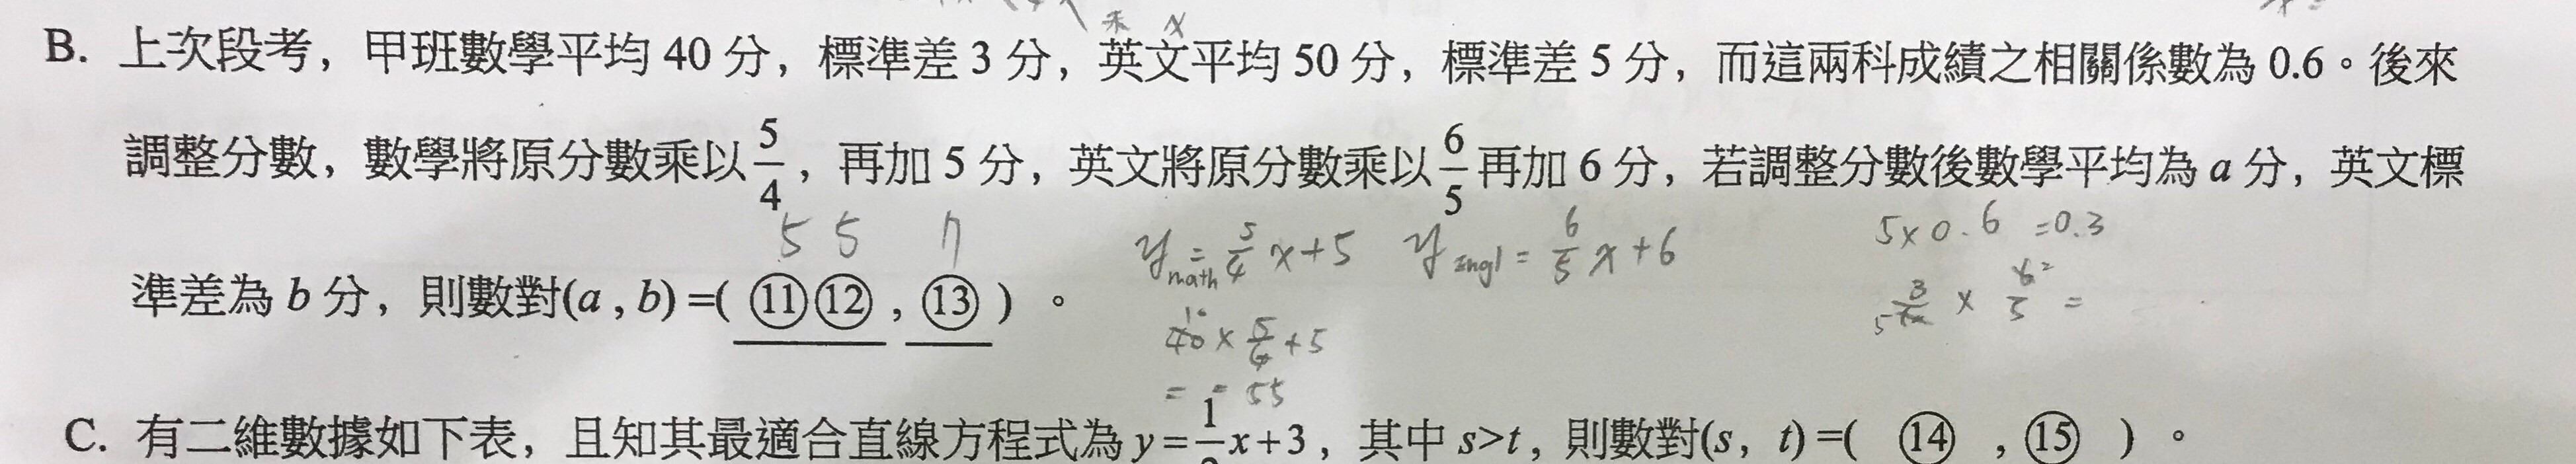 B. 上次段考，甲班數學平均 40 分，標準差 3 分，英文平均 50 分，標準差 5 分，而這兩科成績之相關係數為 0.6。後來
調整分數，數學將原分數乘以 5/4，再加 5 分，英文將原分數乘以 6/5 再加 6 分，若調整分數後數學平均為 a 分，英文標
5 5
y math = 5/4 x + 5 y engl = 6/5 x + 6
5 x 0.6 = 0.3
準差為 b 分，則數對(a , b) =( ⑪⑫ , ⑬ )。
40 x 5/4 + 5
= = 55
C. 有二維數據如下表，且知其最適合直線方程式為 y = x + 3，其中 s>t，則數對(s，t) =( ⑭ , ⑮ )。